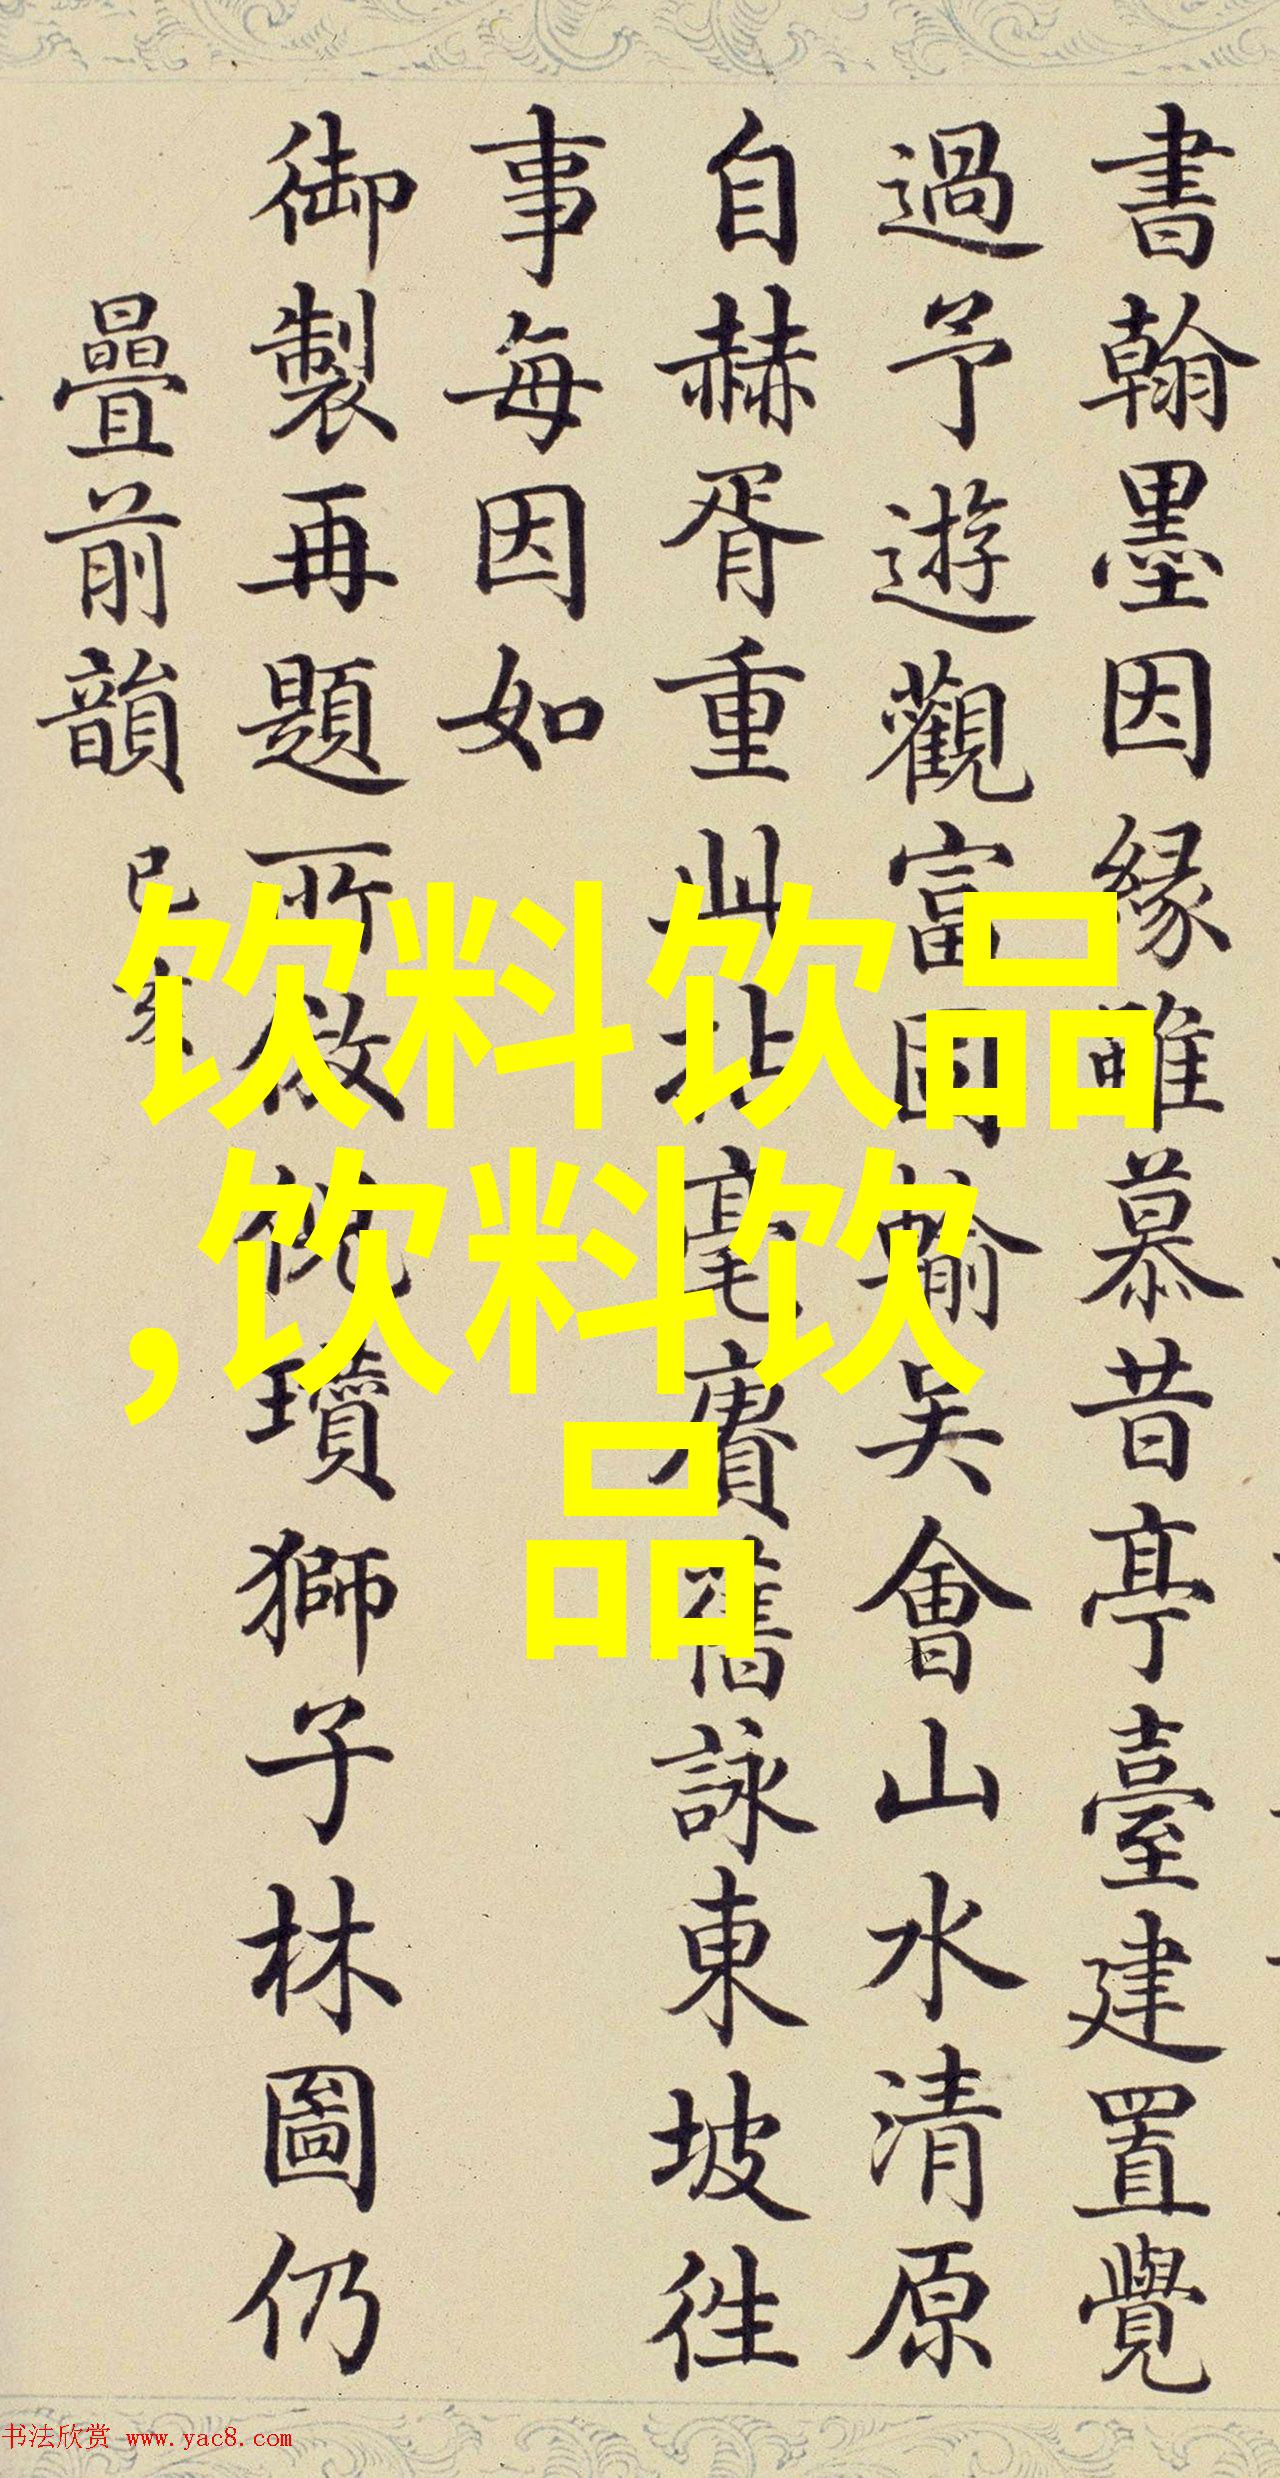 書翰墨因緣雖慕昔亭臺建置覺
過予遊觀富固輸吴會山水清原
自赫胥重此拈毫賡舊詠東坡徃
事每因如
御製再題所倣倪瓚獅子林圖仍
疊前韻 己亥
饮料饮品
,饮料饮
品
书法欣赏 www.yac8.com